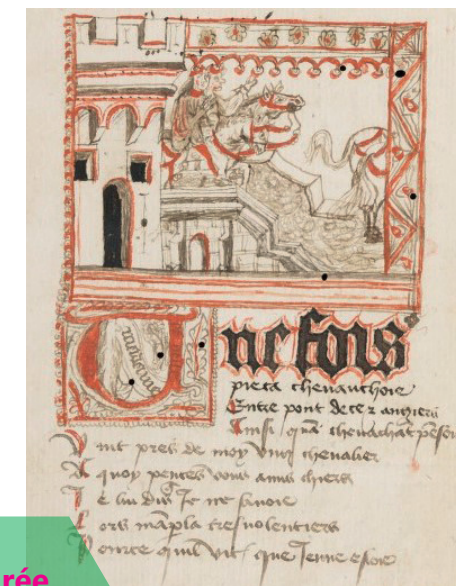 Une fois
pieca chevauchoie
Entre pont de ce z angiers
Ainsi qua chevachat
Vint pres de moy vng chevalier
A quoy pences vous amis chiers
Je lui dis Je ne savoie
Lors mapla tresvolentiers
Pource quil vit que Jenne estoie
rée